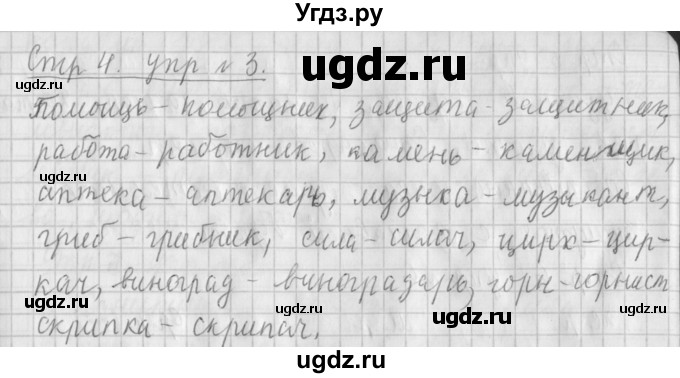 Угдз.ру
Стр 4. упр № 3.
ugdz.ru
Помощь - помощник, защита - защитник,
ugdz.ru
работа - работник, камень - каменщик,
ugdz.ru ugdz.ru
аптека - аптекарь, музыка - музыкант,
гриб - грибник, сила - силач, цирк - цир-
ugdz.ru
кач, виноград - виноградарь, горн - горнист
ugdz.ru ugdz.ru
скрипка - скрипач.
Угдз.ру
ugdz.ru